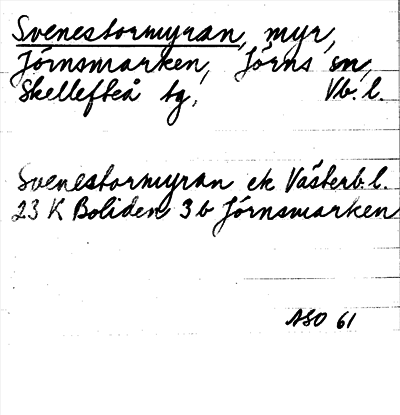 Svenestormyran, myr,
Jörnsmarken, Jörns sn,
Skellefteå tg, Vb. l.
Svenestormyran ek Västerb. l.
23 K Boliden 3 b Jörnsmarken
ASO 61